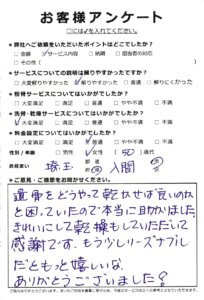 お客様アンケート
□には✓を入れてください。
● 弊社へご依頼をいただいたポイントはどこでしたか？
□ 金額 ☑ サービス内容 □ 納期 □ 担当者の対応
□ その他（ ）
● サービスについての説明は解りやすかったですか？
□ 大変解りやすかった ☑ 解りやすかった □ 普通 □ 解りにくかった
● 粉骨サービスについてはいかがでしたか？
□ 大変満足 □ 満足 □ 普通 □ やや不満 □ 不満
● 洗骨・乾燥サービスについてはいかがでしたか？
□ 大変満足 ☑ 満足 □ 普通 □ やや不満 □ 不満
● 料金設定についてはいかがでしたか？
□ 大変満足 □ 満足 ☑ 普通 □ やや不満 □ 不満
● 性別／年齢 □ 男性 ☑ 女性 歳代
● お住まい 埼玉 都道府県 入間 市
● ご意見・ご感想をお聞かせください。
遺骨をどうやって乾かせば良いのか
と困っていたので本当に助かりました。
きれいにして乾燥もしていただいて
感謝です。もう少しリーズナブル
だともっと嬉しいな。
ありがとうございました？